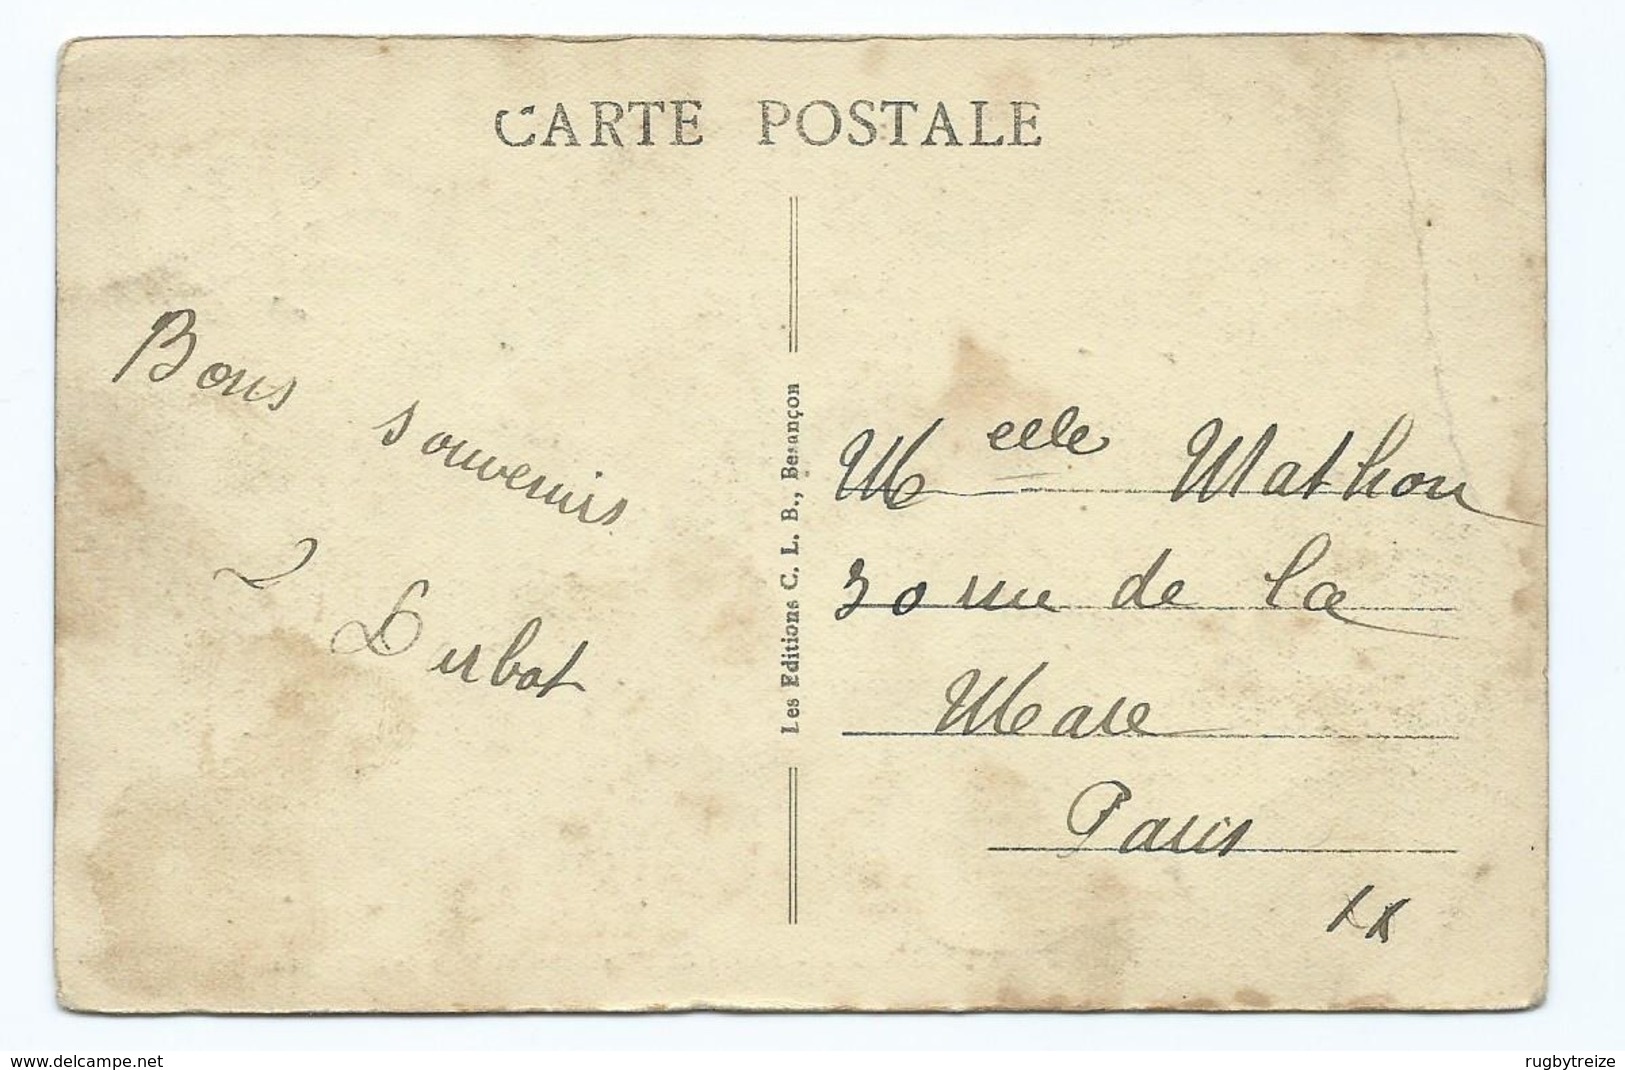 CARTE POSTALE
Bons
souvenirs
Durbot
Les Editions C. L. B., Besançon
Melle Mathon
30 rue de la
Mare
Paris
XX
www.delcampe.net
rugbytreize